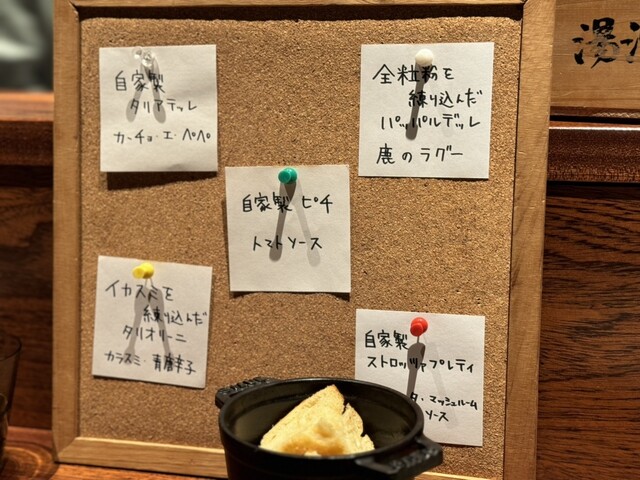 自家製
タリアテッレ
カーチョ・エ・ペペ
全粒粉を
練り込んだ
パッパルデッレ
鹿のラグー
自家製 ピチ
トマトソース
イカスミを
練り込んだ
タリオリーニ
カラスミ・青唐辛子
自家製
ストロッツァプレティ
タ・マッシュルーム
ソース